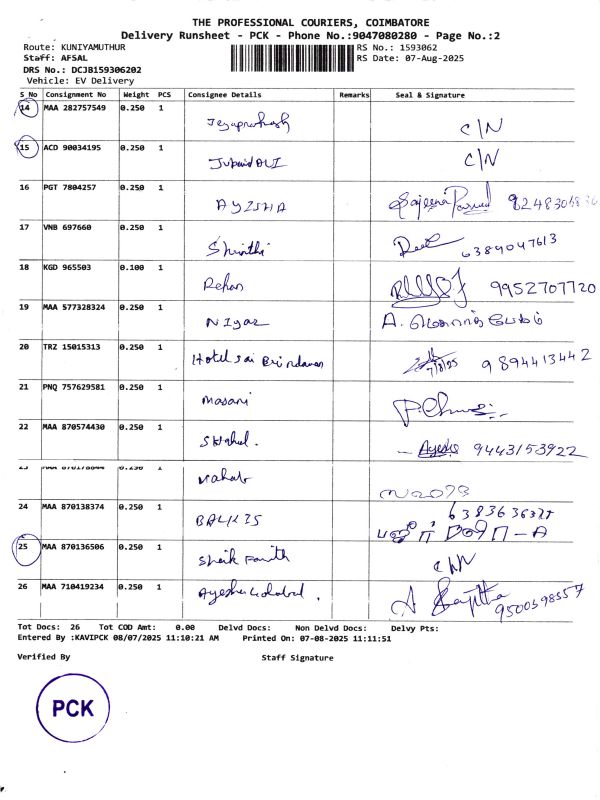 THE PROFESSIONAL COURIERS, COIMBATORE
Delivery Runsheet - PCK - Phone No.:9047080280 - Page No.:2
Route: KUNIYAMUTHUR RS No.: 1593062
Staff: AFSAL RS Date: 07-Aug-2025
DRS No.: DCJB159306202
Vehicle: EV Delivery
S_No Consignment No Weight PCS Consignee Details Remarks Seal & Signature
14 MAA 282757549 0.250 1
Jeyaprakash C/N
15 ACD 90034195 0.250 1
Jubaid ALI C/N
16 PGT 7804257 0.250 1
AYISHA
17 VNB 697660 0.250 1
Shruthi 6389047613
18 KGD 965503 0.100 1
Rehan 9952707720
19 MAA 577328324 0.250 1
NIyaz A.
20 TRZ 15015313 0.250 1
Hotel Sai Brindavan 7/8/25 9894413442
21 PNQ 757629581 0.250 1
Masani
22 MAA 870574430 0.250 1
Shahul. Ayesha 9443153922
23 MAA 870178844 0.250 1
Mahab
24 MAA 870138374 0.250 1
BALKIS
25 MAA 870136506 0.250 1
Shaik Farith C/N
26 MAA 710419234 0.250 1
9500398557
Tot Docs: 26 Tot COD Amt: 0.00 Delvd Docs: Non Delvd Docs: Delvy Pts:
Entered By :KAVIPCK 08/07/2025 11:10:21 AM Printed On: 07-08-2025 11:11:51
Verified By Staff Signature
PCK